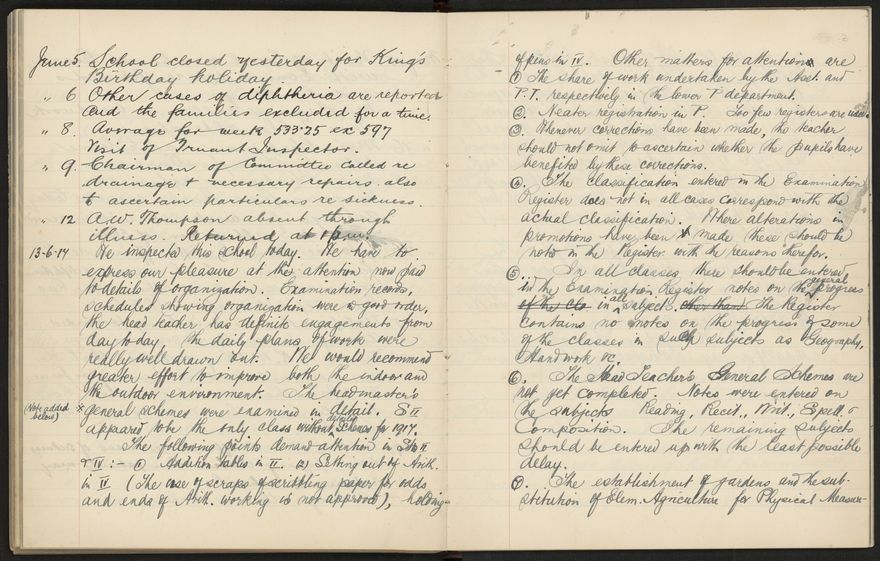 June 5. School closed yesterday for King's
Birthday holiday
" 6 Other cases of diphtheria are reported
and the families excluded for a time.
" 8. Average for week 533.75 ex 597
Visit of Truant Inspector.
" 9. Chairman of Committee called re
drainage + necessary repairs. also
to ascertain particulars re sickness.
" 12 A.W. Thompson absent through
illness. Returned at 1 p.m.
13-6-14 We inspected this school today. We have to
express our pleasure at the attention now paid
to details of organization. Examination records,
schedules showing organization were in good order,
the head teacher has definite engagements from
day to day, the daily plans of work were
really well drawn out. We would recommend
greater effort to improve both the indoor and
the outdoor environment. The headmaster's
(Note added below) x general schemes were examined in detail. S II
appeared to be the only class without detailed Schemes for 1914.
The following points demand attention in Stds II
& IV :- (1) Addition tables in II. (2) Setting out of Arith.
in IV (The use of scraps of scribbling paper for odds
and ends of Arith. working is not approved), holding
of pens in IV. Other matters for attention are
(1) The share of work undertaken by the Asst. and
P.T. respectively in the lower P department.
(2). Neater registration in P. Too few registers are used.
(3) Whenever corrections have been made, the teacher
should not omit to ascertain whether the pupils have
benefited by these corrections.
(4). The classification entered in the Examination
Register does not in all cases correspond with the
actual classification. Where alterations in
promotions have been made these should be
noted in the Register with the reasons therefor.
(5) In all classes there should be entered
in the Examination Register notes on the general progress
of the cls in all subjects other than The Register
contains no notes on the progress of some
of the classes in such subjects as Geography,
Handwork &c.
(6. The Head Teacher's General Schemes are
not yet completed. Notes were entered on
the subjects Reading, Recit., Writ., Spell. &
Composition. The remaining subjects
should be entered up with the least possible
delay.
(7). The establishment of gardens and the sub-
stitution of Elem. Agriculture for Physical Measure-